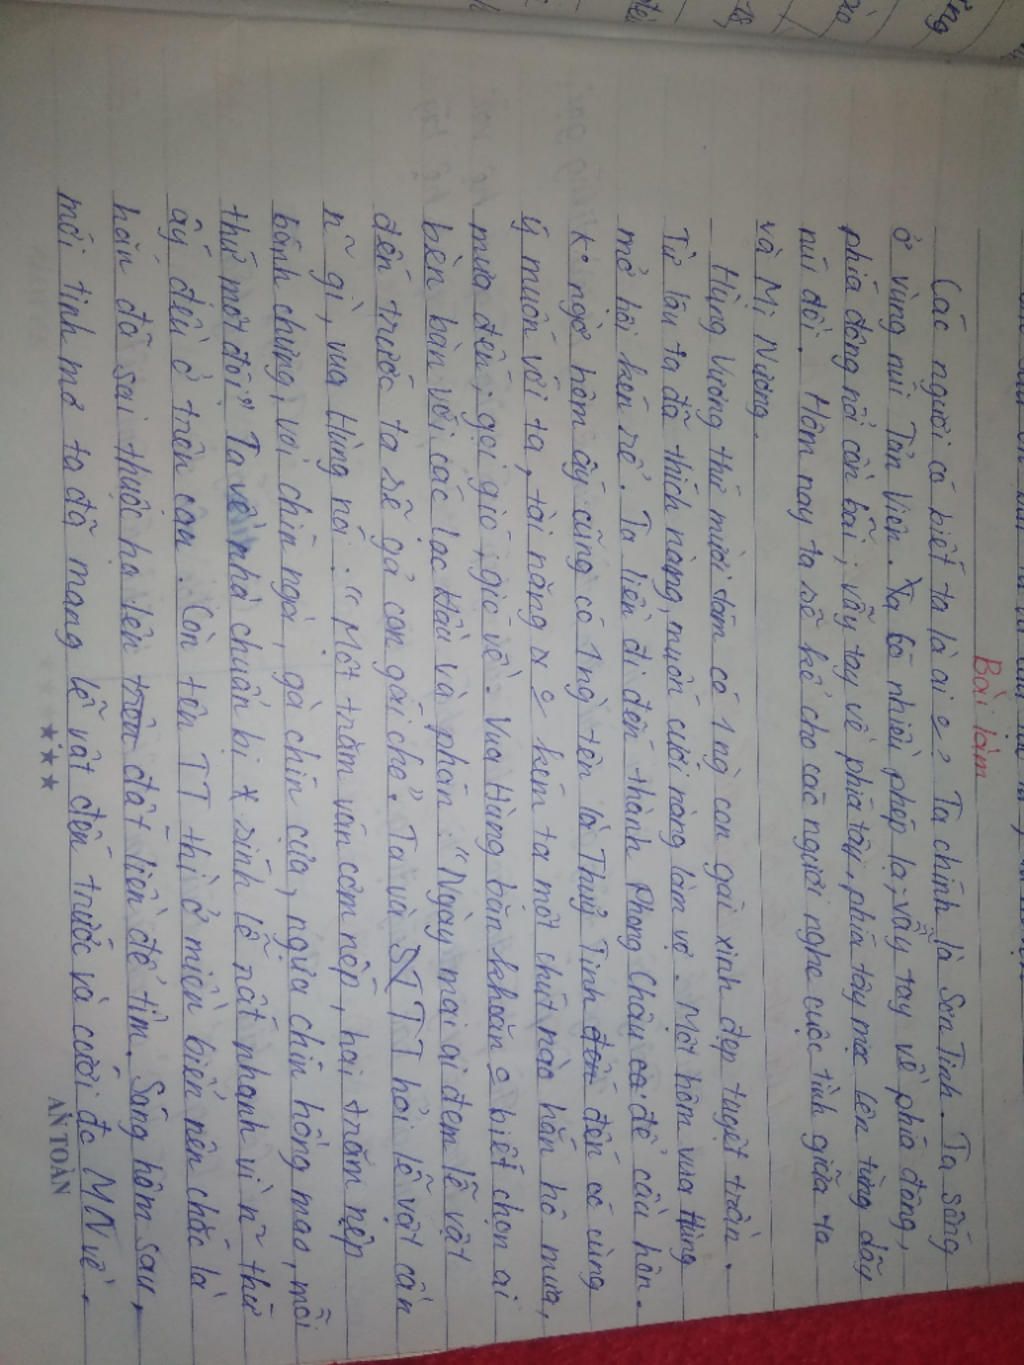 Bài làm
Các người có biết ta là ai o? Ta chính là Sơn Tinh. Ta sống
ở vùng núi Tản Viên. Ta có nhiều phép lạ; vẫy tay về phía đông,
phía đông nổi cồn bãi; vẫy tay về phía tây, phía tây mọc lên từng dãy
núi đồi. Hôm nay ta sẽ kể cho các người nghe cuộc tình giữa ta
và Mị Nương.
Hùng Vương thứ mười tám có 1 ng` con gái xinh đẹp tuyệt trần.
Từ lâu ta đã thích nàng, muốn cưới nàng làm vợ. Một hôm vua Hùng
mở hội kén rể. Ta liền đi đến thành Phong Châu để cầu hôn.
K° ngờ hôm ấy cũng có 1 ng` tên là Thuỷ Tinh đến có cùng
ý muốn với ta, tài năng o kém ta một chút nào hắn hô mưa,
mưa đến; gọi gió, gió về. Vua Hùng băn khoăn o biết chọn ai
bèn bàn với các lạc Hầu và phán: "Ngày mai ai đem lễ vật
đến trước ta sẽ gả con gái cho". Ta và TT hỏi lễ vật cần
n~ gì, vua Hùng nói: "Một trăm ván cơm nếp, hai trăm nệp
bánh chưng, voi chín ngà, gà chín cựa, ngựa chín hồng mao, mỗi
thứ một đôi" Ta về nhà chuẩn bị sính lễ rất nhanh vì n~ thứ
ấy đều ở trên cạn. Còn tên TT thì ở miền biển nên chắc là
hắn đã sai thuộc hạ lên đất liền để tìm. Sáng hôm sau,
mới tinh mơ ta đã mang lễ vật đến trước và cưới đc MN về.
AN TOÀN